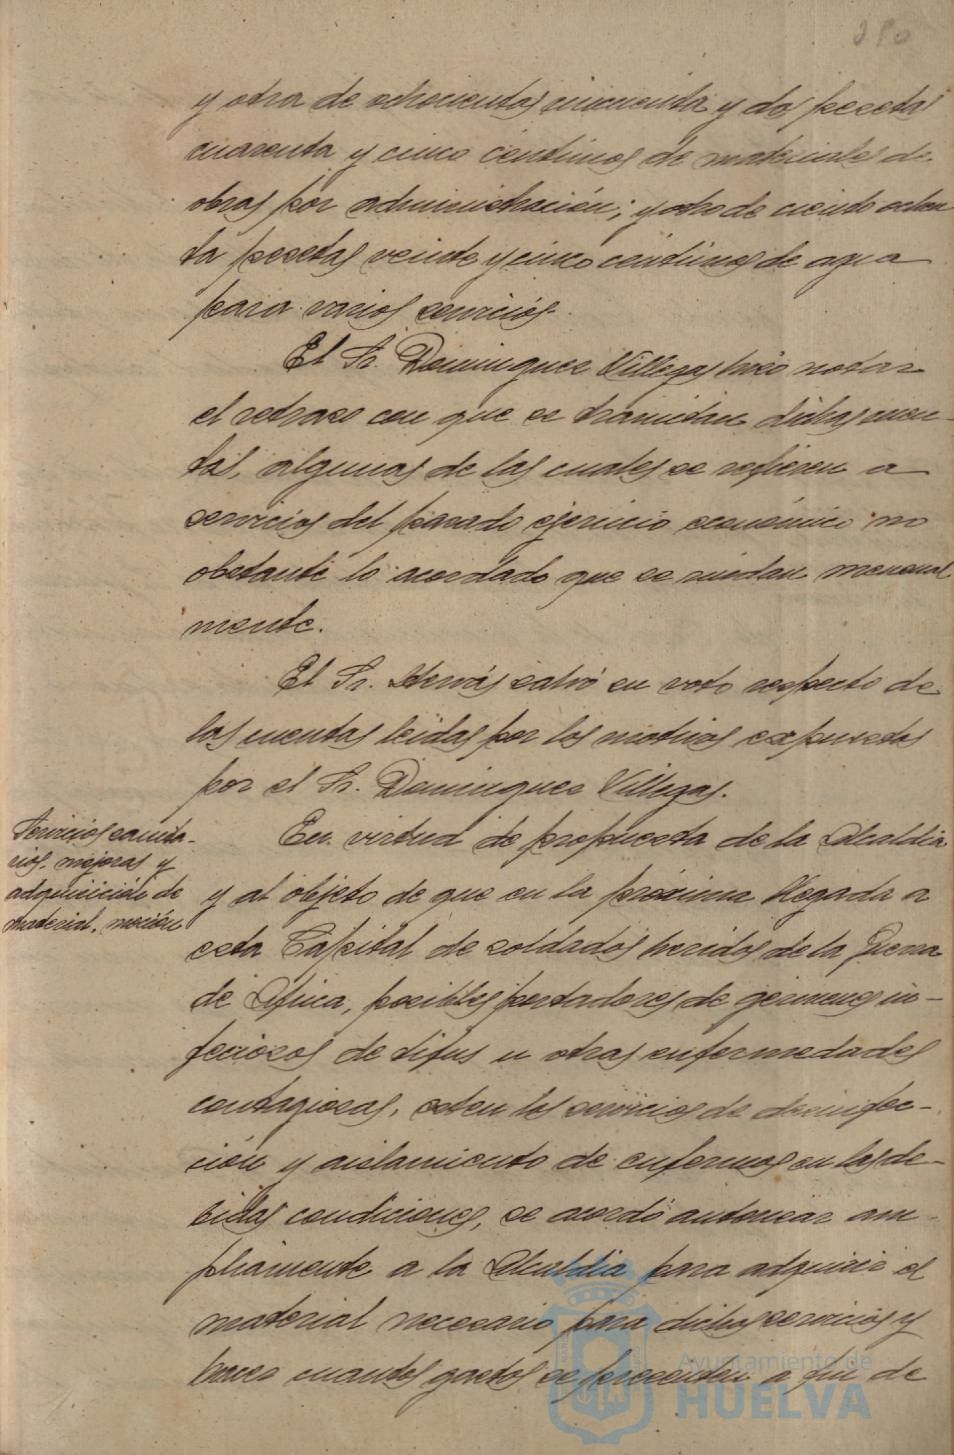 y otra de ochocientas cincuenta y dos pesetas
cuarenta y cinco céntimos de materiales de
obras por administración; y otro de ciento ochen
ta pesetas veinte y cinco céntimos de agua
para varios servicios.
El Sr. Dominguez Villegas hizo notar
el retraso con que se tramitan dichas cuen-
tas, algunas de las cuales se refieren a
servicios del pasado ejercicio económico no
obstante lo acordado que se rindan mensual
mente.
El Sr. salvó su voto respecto de
las cuentas leidas por los motivos expuestos
por el Sr. Dominguez Villegas.
Servicios sanita-
rios, mejoras y
adquisición de
material, moción
En virtud de propuesta de la Alcaldia
y al objeto de que en la próxima llegada a
esta Capital de soldados heridos de la Guerra
de Africa, posibles portadores de germenes in-
fecciosos de tifus u otras enfermedades
contagiosas, esten los servicios de desinfec-
ción y aislamiento de enfermos en las de-
bidas condiciones, se acordó autorizar am-
pliamente a la Alcaldia para adquirir el
material necesario para dichos servicios y
hacer cuantos gastos se presenten a fin de
Ayuntamiento de
HUELVA